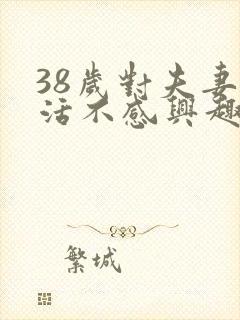 38歲對夫妻
活不感興趣
繁城